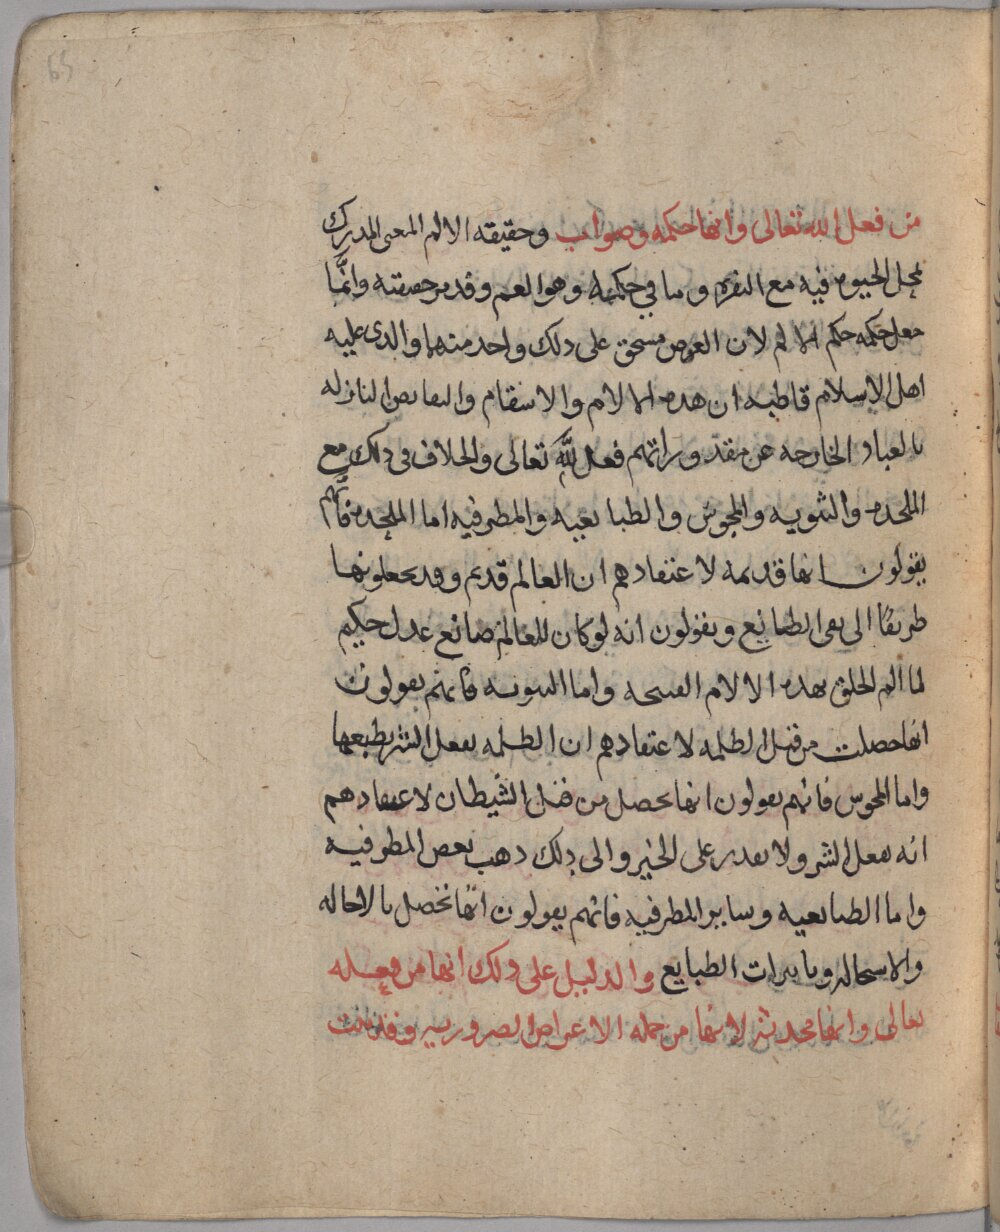 65
من فعل الله تعالى وانها حكمه وصواب وحقيقه الالم المعنى المدرك
بمحل الحيوه فيه مع النفره وما في حكمه وهو الغم وقد مر حقيقته وانَّما
جعل حكمه حكم الالم لان العوض مستحق على ذلك واحد منهما والذى عليه
اهل الاسلام قاطبه ان هذه الالام والاسقام والنقايص النازله
بالعباد الخارجه عن مقدوراتهم فعل لله تعالى والخلاف في ذلك مع
الملحده والثنويه والمجوس والطبايعيه والمطرفيه اما الملحده فانهم
يقولون انها قديمه لاعتقادهم ان العالم قديم وقد يجعلونها
طريقًا الى نفى الصانع ويقولون انه لو كان للعالم صانع عدل حكيم
لما الم الخلق بهذه الالام القبيحه واما الثنويه فانهم يقولون
انها حصلت من قبل الظلمه لاعتقادهم ان الظلمه تفعل الشر بطبعها
واما المجوس فانهم يقولون انها تحصل من فعل الشيطان لاعتقادهم
انه يفعل الشر ولا يقدر على الخير والى ذلك ذهب بعض المطرفيه
واما الطبايعيه وساير المطرفيه فانهم يقولون انها تحصل بالاحاله
والاستحاله وتاثيرات الطبايع والدليل على ذلك انها من فعله
تعالى وانها محدثه لانها من جمله الاعراض الضروريه وقد ثبت